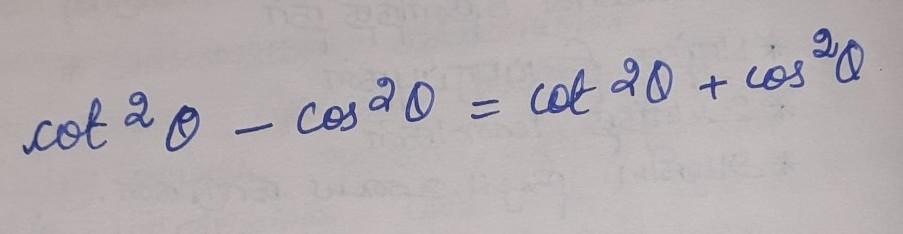 cot²θ - cos²θ = cot²θ + cos²θ